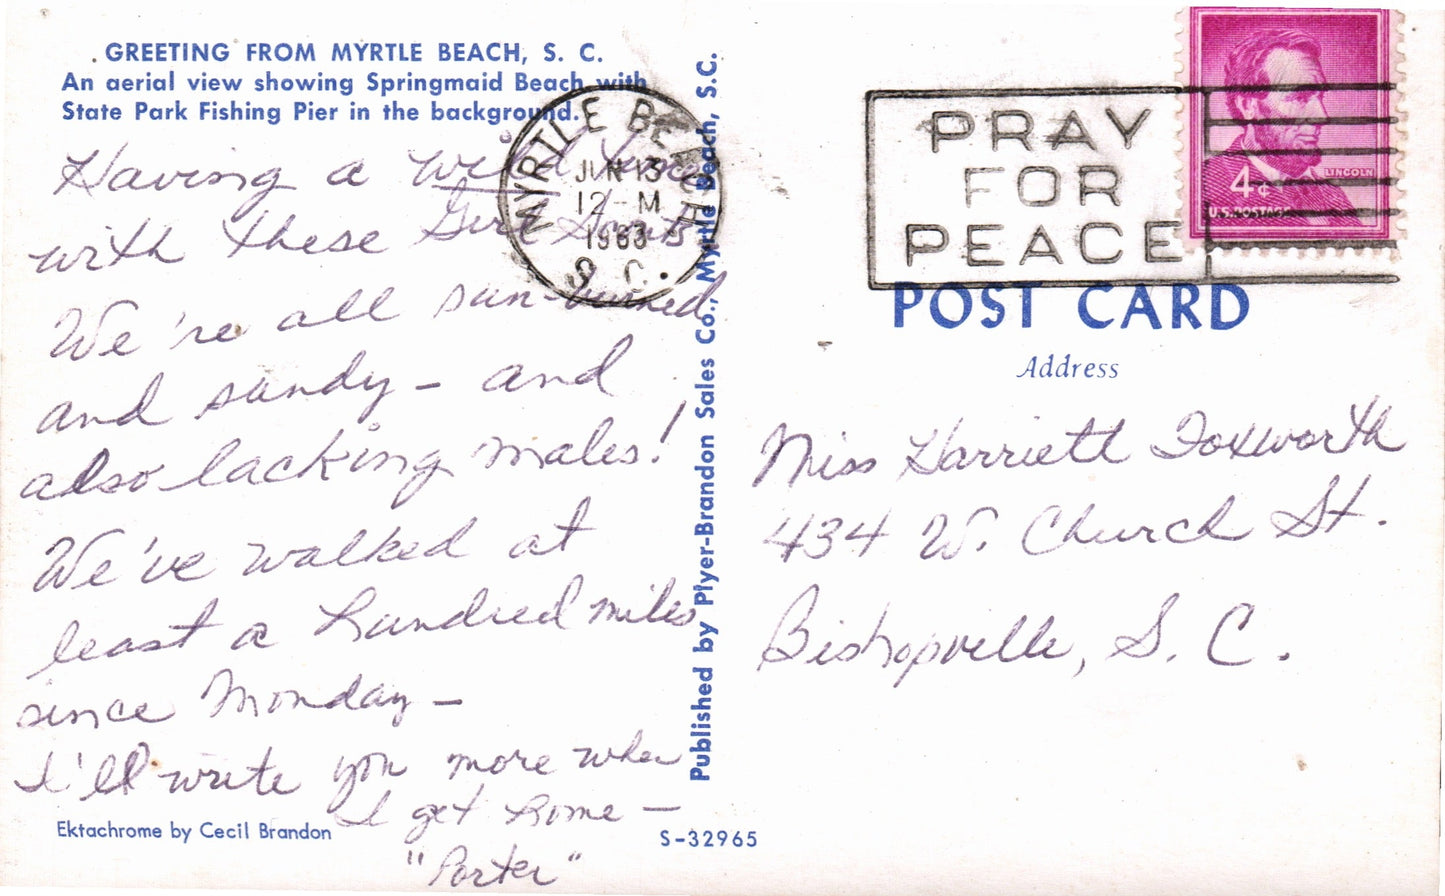 . GREETING FROM MYRTLE BEACH, S. C.
An aerial view showing Springmaid Beach with
State Park Fishing Pier in the background.
Having a wild time
with these Girl Scouts
We're all sun-burned
and sandy - and
also lacking males!
We've walked at
least a hundred miles
since Monday -
I'll write you more when
I get home -
"Porter"
Ektachrome by Cecil Brandon
S-32965
Published by Plyer-Brandon Sales Co., Myrtle Beach, S.C.
MYRTLE BEACH
JUN 13
12-M
1963
S. C.
PRAY
FOR
PEACE
LINCOLN
4¢
U.S. POSTAGE
POST CARD
Address
Miss Harriett Foxworth
434 W. Church St.
Bishopville, S. C.